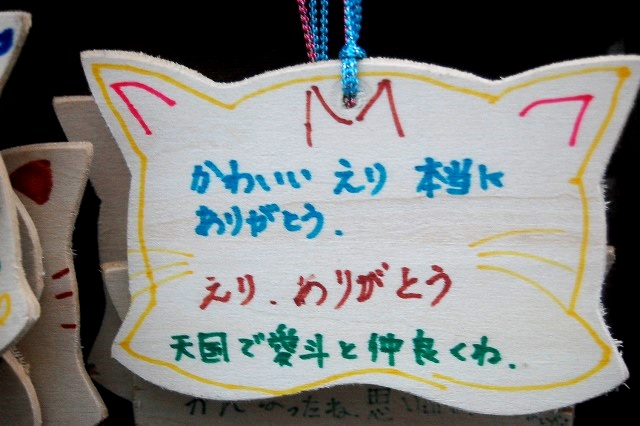 かわいい えり 本当に
ありがとう.
えり. ありがとう
天国で愛斗と仲良くね.